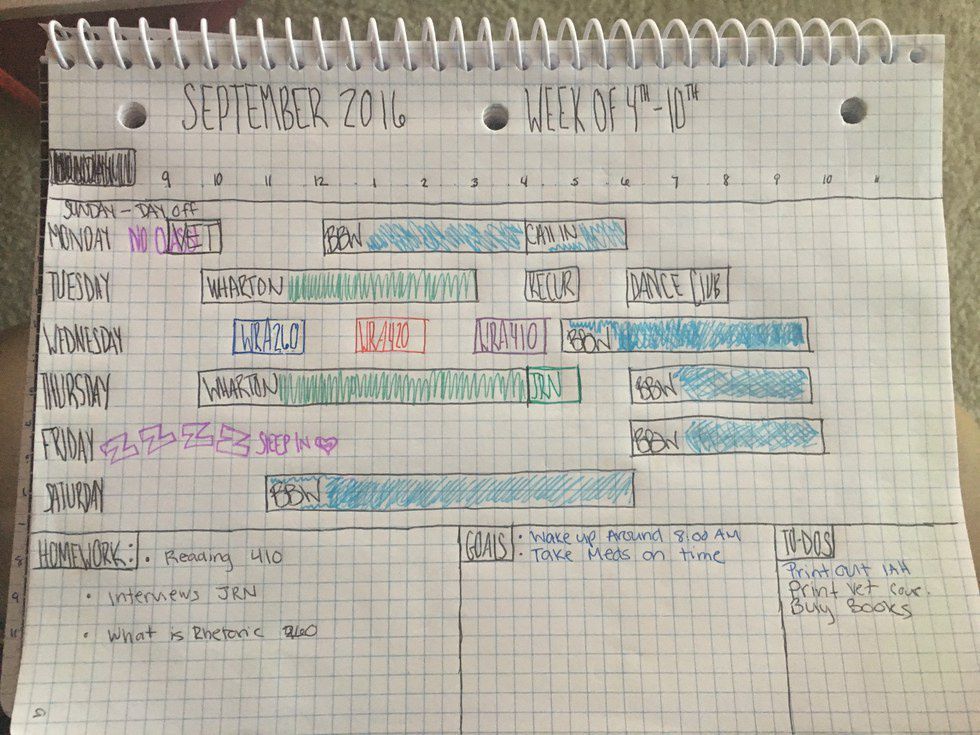 SEPTEMBER 2016 WEEK OF 4TH-10TH
9 10 11 12 1 2 3 4 5 6 7 8 9 10 11
SUNDAY - DAY OFF
MONDAY NO CLASS VET BBW CALL IN
TUESDAY WHARTON RECUR DANCE CLUB
WEDNESDAY WRA260 WRA420 WRA410 BBW
THURSDAY WHARTON JRN BBW
FRIDAY ZZZZ SLEEP IN BBW
SATURDAY BBW
HOMEWORK: • Reading 410
• Interviews JRN
• What is Rhetoric 260
GOALS • Wake up Around 8:00 AM
• Take Meds on time
TO-DOS
Print out IAH
Print Vet Cour.
Buy Books